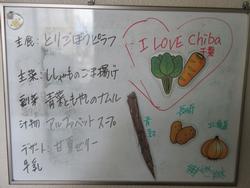 主食：とりごぼうピラフ
主菜：ししゃものごま揚げ
副菜：青菜ともやしのナムル
汁物：アルファベットスープ
デザート：甘夏ゼリー
牛乳
I LOVE Chiba
千葉
長崎
青森
北海道